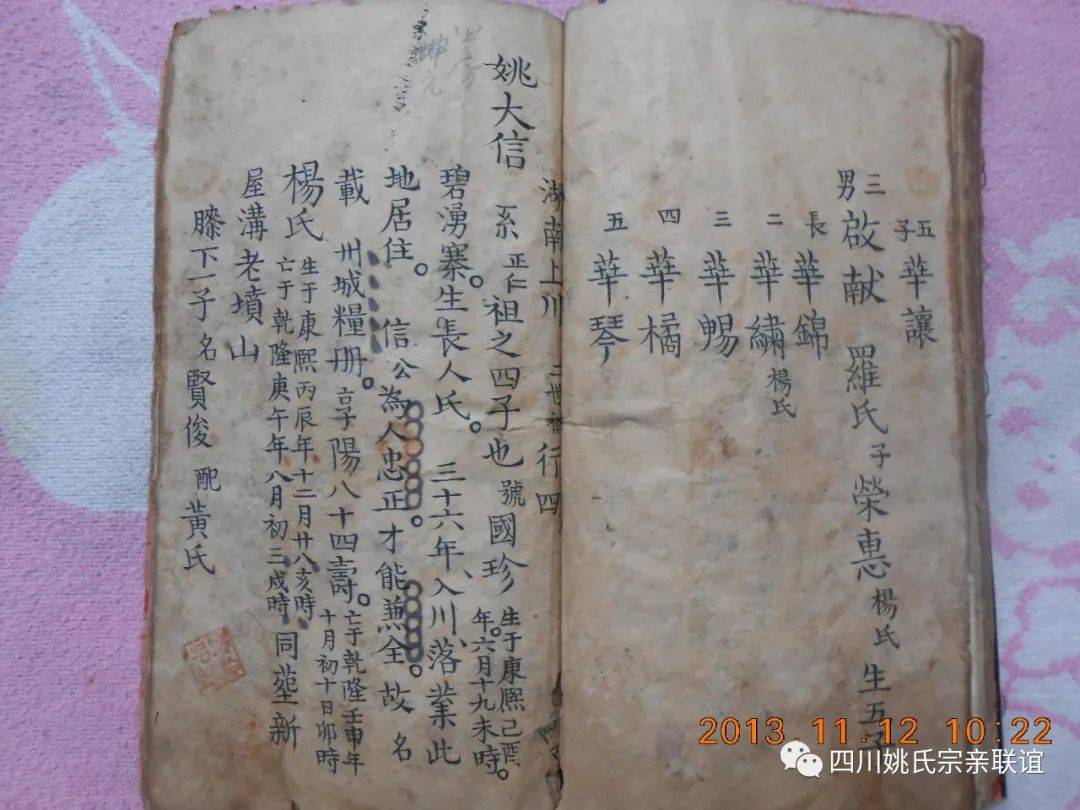 三男啟献 羅氏 子榮惠 楊氏 生五子
五子華讓
長華錦
二華繡 楊氏
三華賜
四華橘
五華琴
湖南上川 二世祖 行四
姚大信 系正仁祖之四子也 號國珍 生于康熙己酉年。六月十九未時。
碧湧寨。生長人氏。 三十六年、入川、落業此
地居住。 信公為人忠正。才能兼全。故 名
載 州城糧册。 享陽八十四壽。 亡于乾隆壬申年十月初十日卯時
楊氏 生于康熙丙辰年十二月廿八亥時 亡于乾隆庚午年八月初三戍時 同塋新
屋溝老墳山
膝下一子 名賢俊 配黃氏
2013.11.12 10:22
四川姚氏宗亲联谊